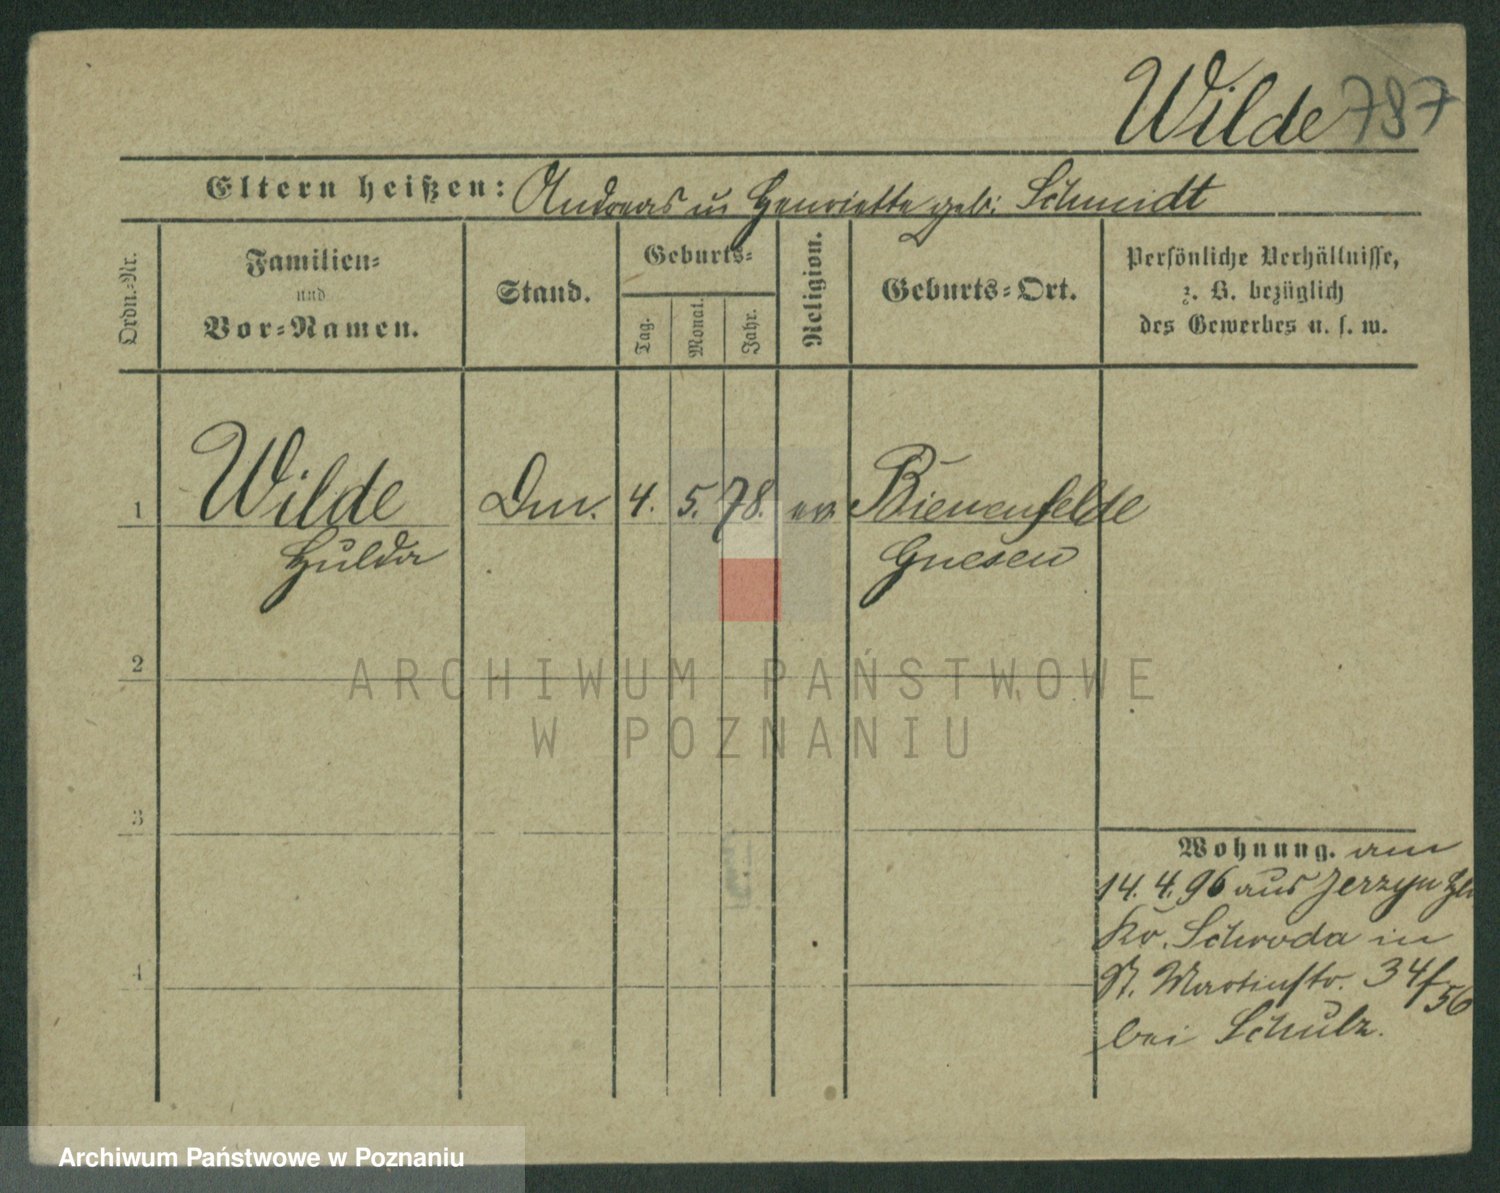 Wilde 787
Eltern heißen: Andreas u Henriette geb: Schmidt
Ordn.-Nr.
Familien-
und
Vor-Namen.
Stand.
Geburts-
Tag.
Monat.
Jahr.
Religion.
Geburts-Ort.
Persönliche Verhältnisse,
z. B. bezüglich
des Gewerbes u. s. w.
1 Wilde 4. 5. 78. ev Bienenfelde
Hulda Gnesen
2
ARCHIWUM PAŃSTWOWE
W POZNANIU
3
Wohnung. am
14. 4. 96 aus Jerzyn
Kr. Schroda in
St. Martinstr. 34/56
4
bei Schulz.
Archiwum Państwowe w Poznaniu